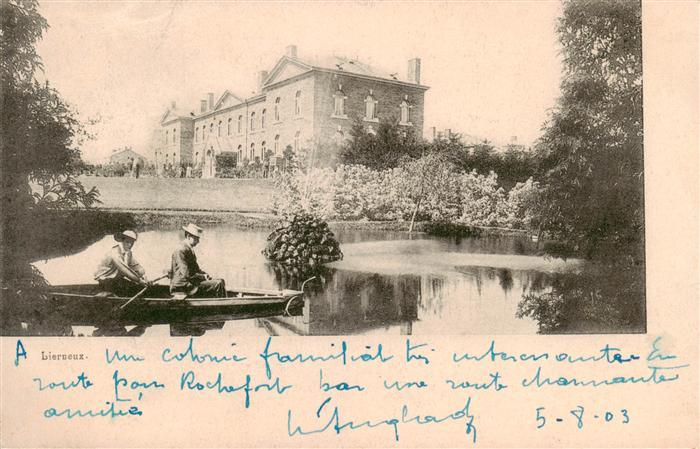 A Lierneux. une colonie familial très intéressante En
route pour Rochefort par une route charmante
amitiés
5-8-03